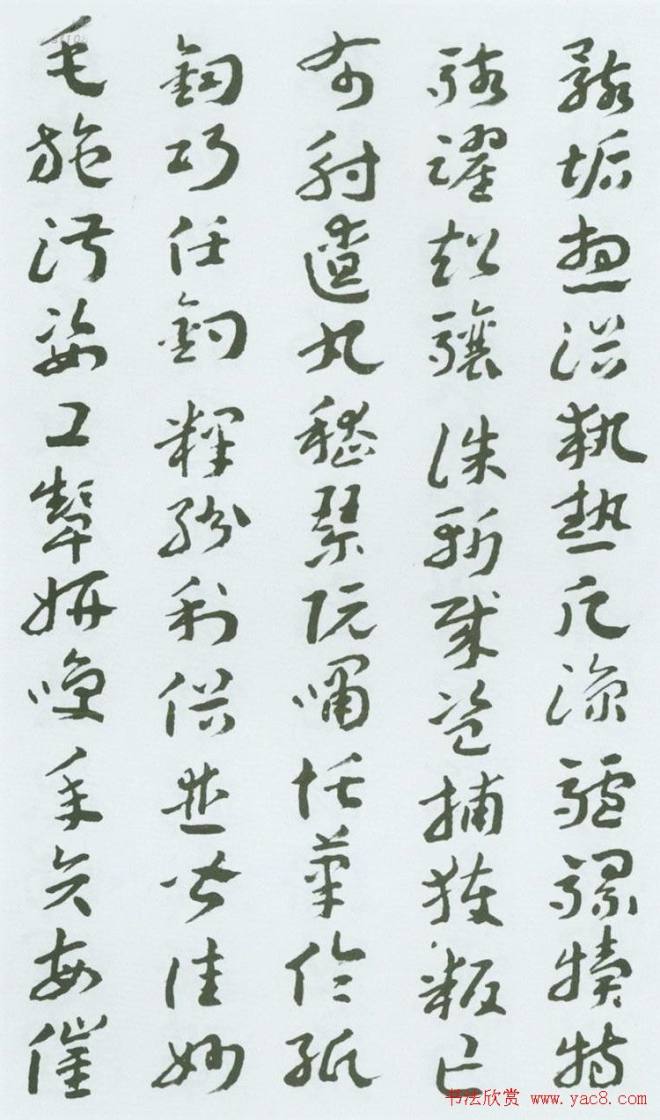 骸垢想浴執熱願涼驢騾犢特
駭躍超驤誅斬賊盜捕獲叛亡
布射遼丸嵇琴阮嘯恬筆倫紙
鈞巧任釣釋紛利俗並皆佳妙
毛施淑姿工顰妍笑年矢每催
书法欣赏 www.yac8.com